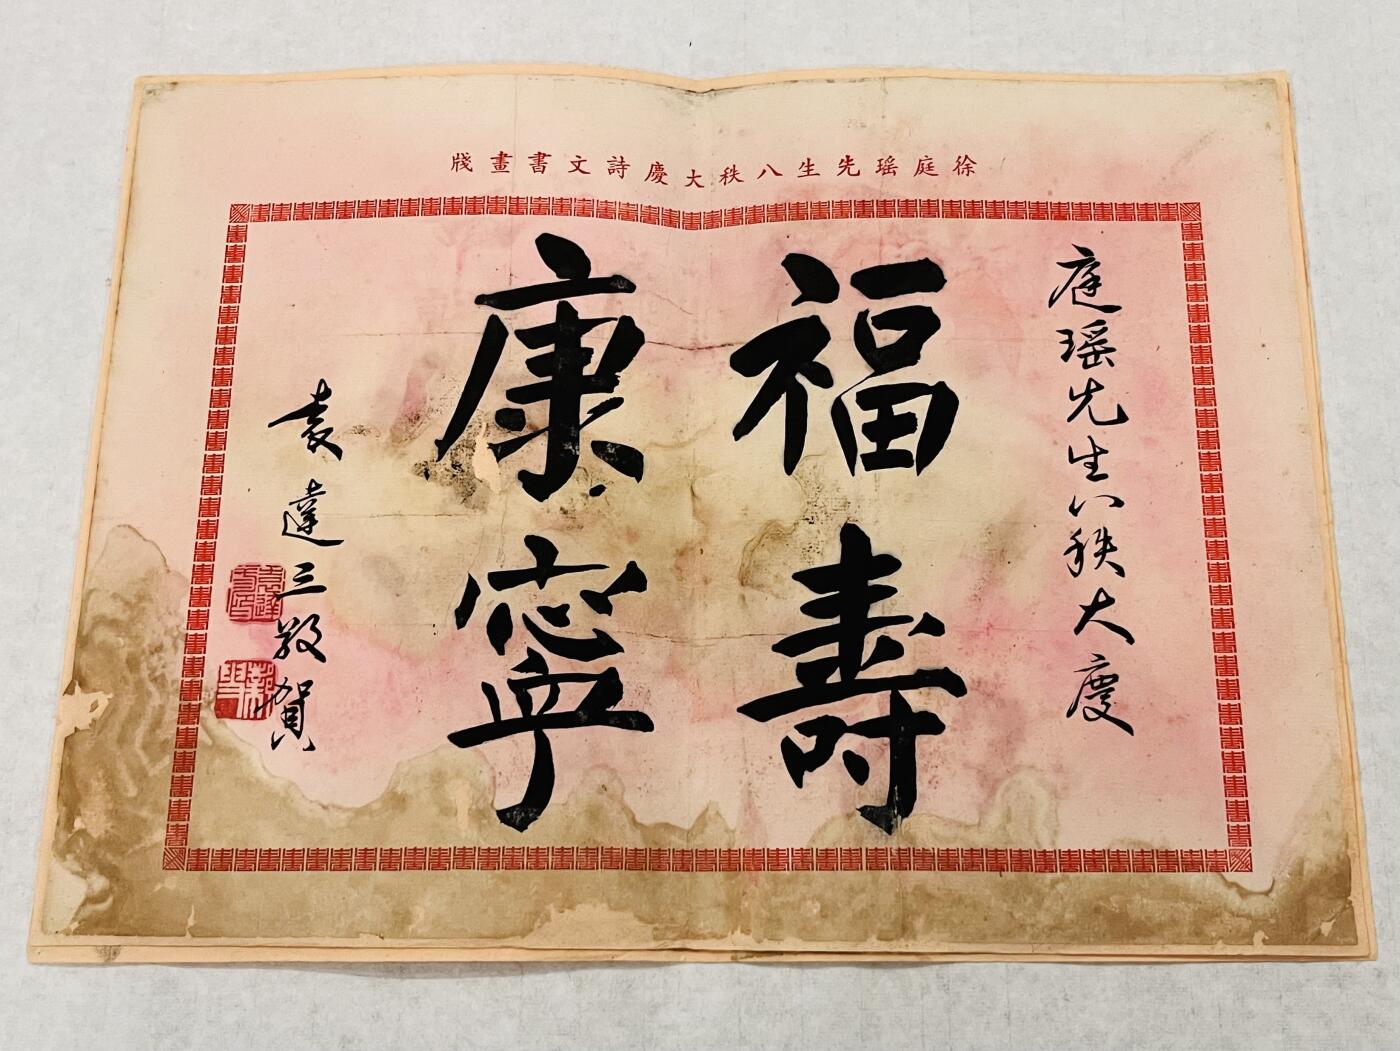 徐庭瑤先生八秩大慶詩文書畫牋
庭瑤先生八秩大慶
福壽
康寧
袁達三敬賀